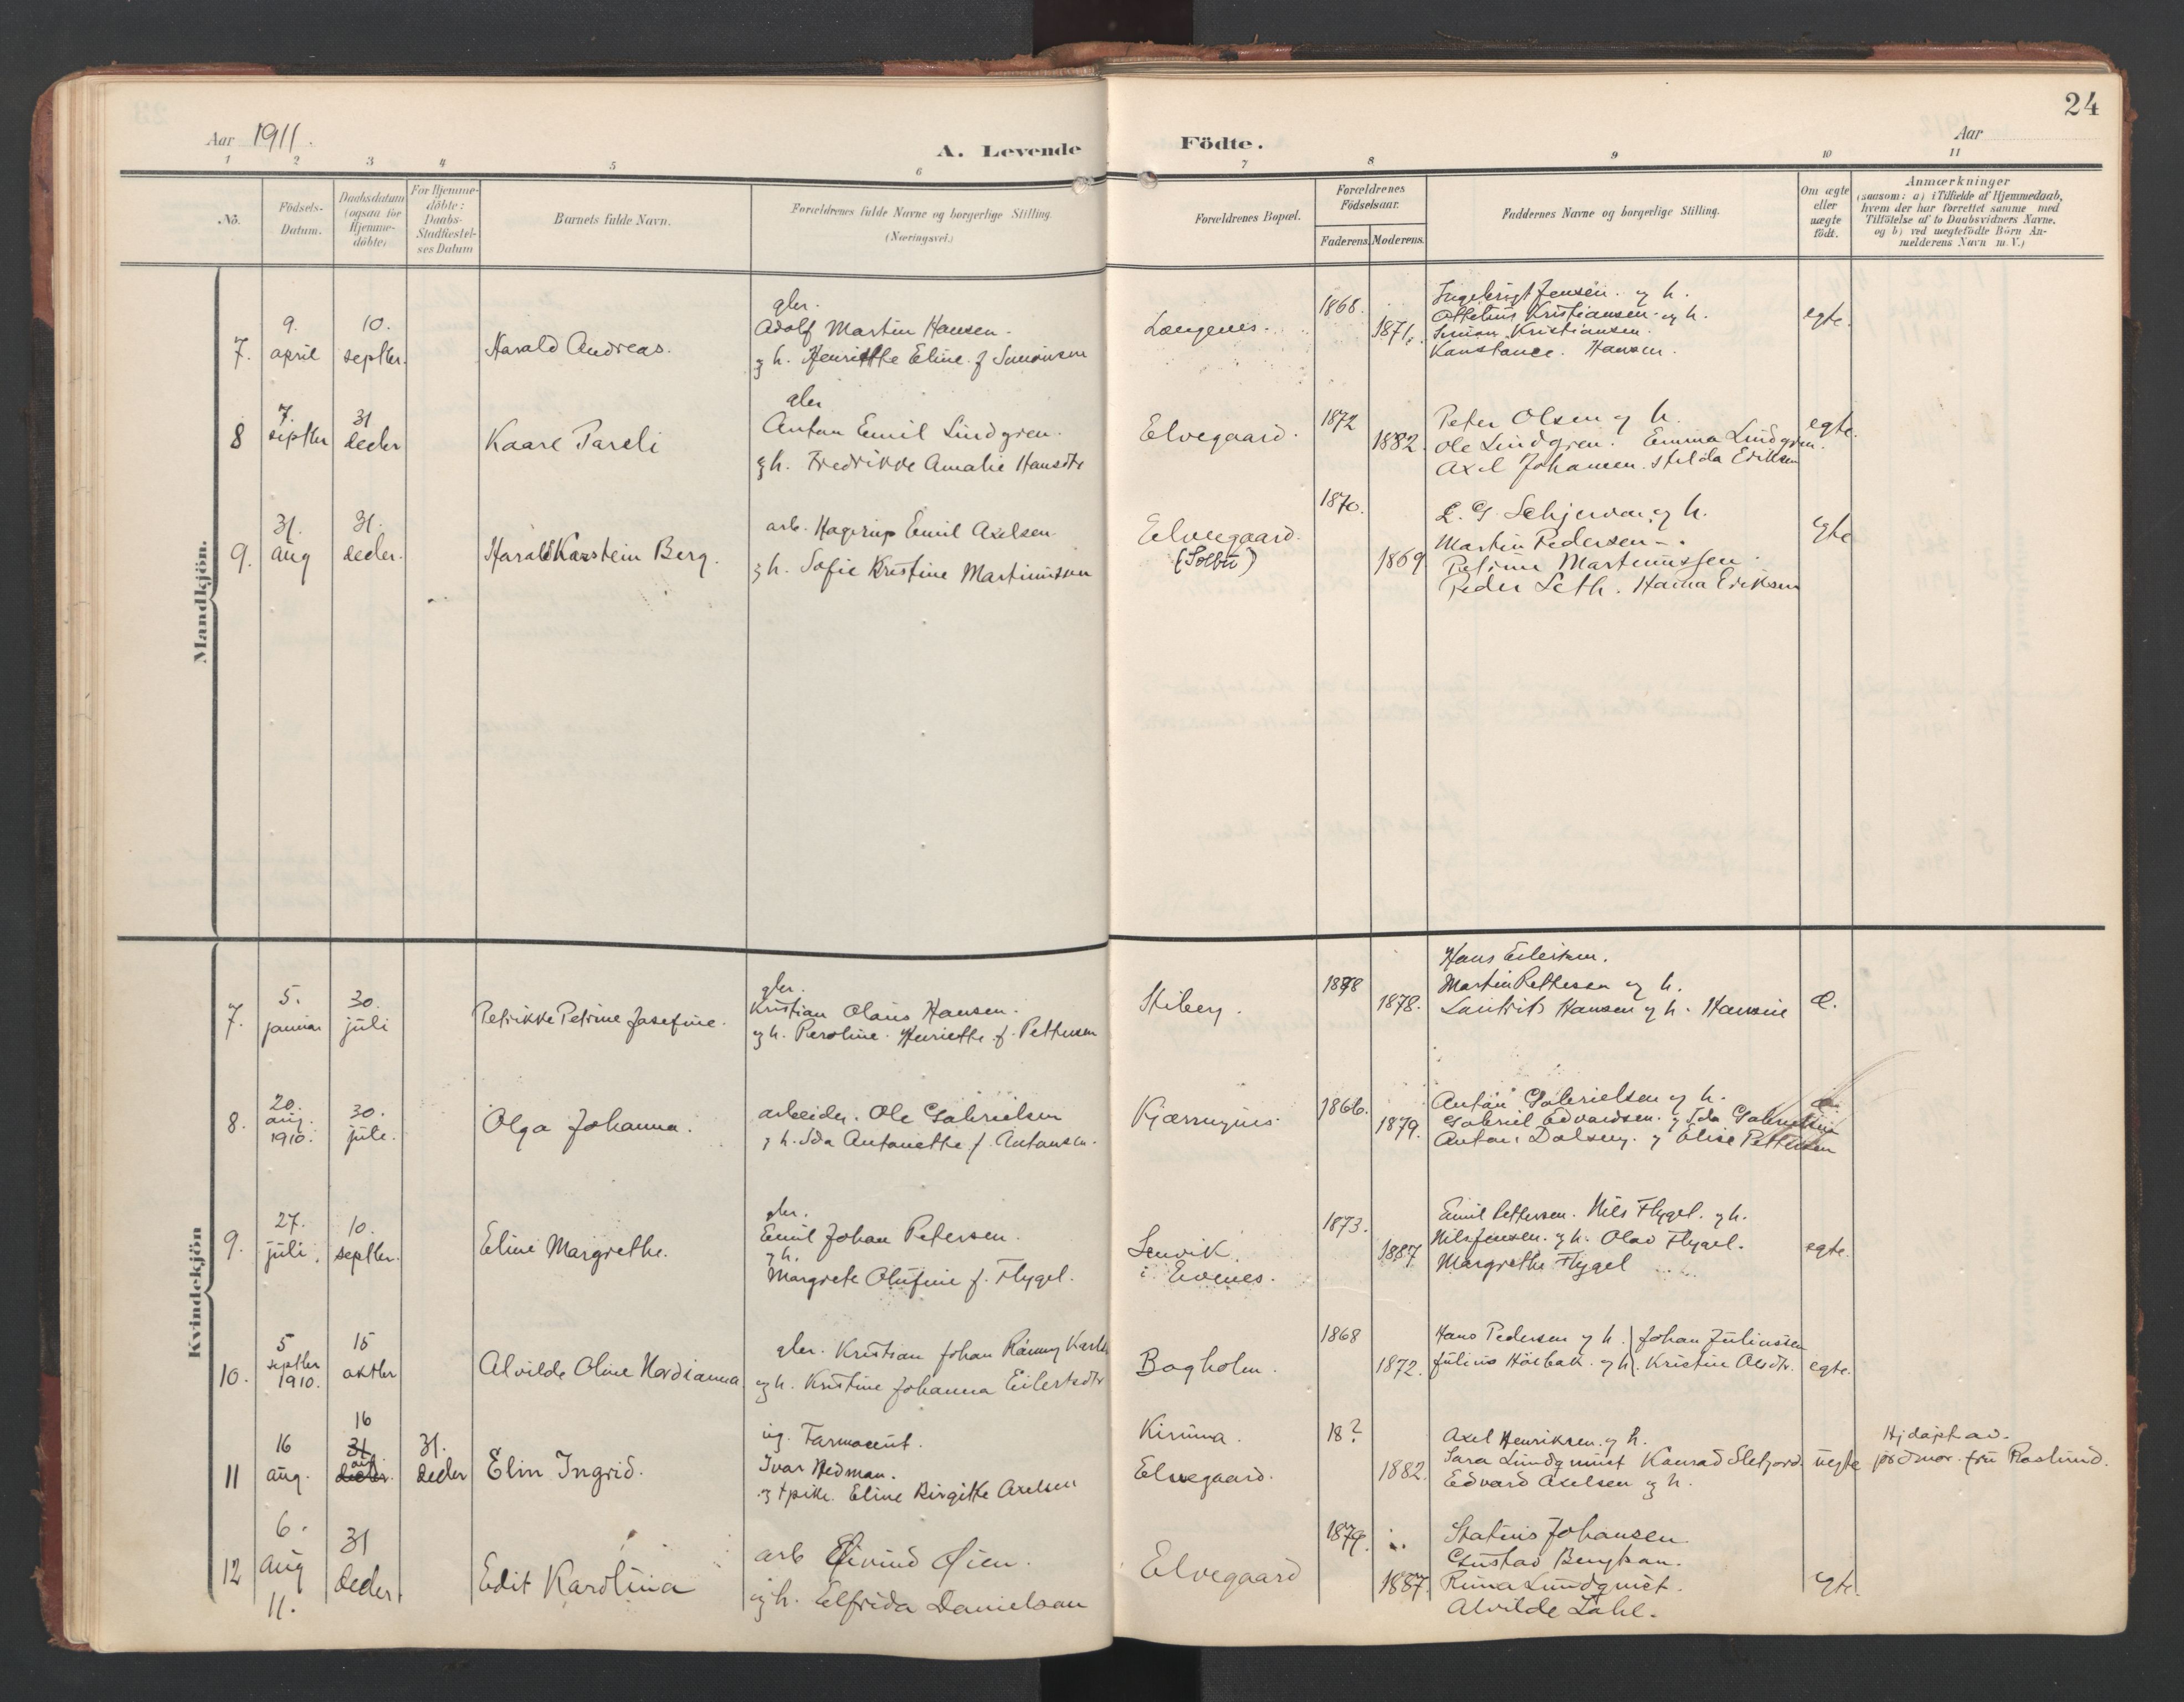 24
Aar 1911.
A. Levende Födte.
Aar
1 2 3 4 5 6 7 8 9 10 11
Nö.
Födsels-Datum.
Daabsdatum (ogsaa for Hjemme-döbte)
For Hjemme-döbte: Daabs-Stadfæstel-ses Datum
Barnets fulde Navn.
Forældrenes fulde Navne og borgerlige Stilling. (Næringsvei.)
Forældrenes Bopæl.
Forældrenes Födselsaar.
Faderens. Moderens.
Faddernes Navne og borgerlige Stilling.
Om ægte eller uægte födt.
Anmærkninger
(saasom: a) i Tilfælde af Hjemmedaab, hvem der har forrettet samme med Tilföielse af to Daabsvidners Navne, og b) ved uægtefödte Börn An-melderens Navn m. V.)
Mandkjön.
7. 9. april
10. septbr.
Harald Andreas.
gbr.
Adolf Martin Hansen.
og h. Henriette Eline f. Simonsen
Længenes.
1868.
1871.
Ingebrigt Jensen. og h.
Ottelius Kristiansen og h.
Simon Kristiansen.
Konstance. Hansen.
egte.
8 7. septbr
31 decbr
Kaare Pareli
gbr
Anton Emil Lindgren.
og h. Fredrikke Amalie Hansdtr
Elvegaard.
1872
1882.
Peter Olsen og h.
Ole Lindgren. Emma Lindgren.
Axel Johansen. Hilda Eriksen
egte.
9. 31. aug
31. decbr.
Harald Karstein Berg.
arb. Hagerup Emil Axelsen
og h. Sofie Kristine Martinussen
Elvegaard.
(Solbu)
1870.
1869
L. G. og h.
Martin Pedersen
Petrine Martinussen
Peder Seth. Hanna Eriksen
egte
Kvindekjön
7. 5. januar
30. juli
Petrikke Petrine Josefine.
gbr.
Kristian Olaus Hansen.
og h. Peroline Henriette f. Pettersen
Stiberg.
1878
1878.
Hans Eilertsen.
Martin Pettersen og h.
Lauritz Hansen og h. Hansine
e.
8. 20. aug. 1910.
30. juli.
Olga Johanna.
arbeider. Ole Gabrielsen
og h. Ida Antonette f. Antonsen.
1866.
1879.
Anton Gabrielsen og h.
Gabriel Edvardsen. og Ida Gabrielsen
Anton Dalseng. og Elise Pettersen
e.
9. 27. juli.
10. septbr.
Eline Margrethe.
gbr.
Emil Johan Petersen.
og h.
Margrete Olufine f. Flygel.
Lenvik.
i Evenes.
1873.
1887
Emil Pettersen. Nils Flygel. og h.
Nils Jensen. og h. Olav Flygel.
Margrethe Flygel
egte.
10. 5 septbr 1910.
15 oktbr
Alvilde Oline Nordianna.
gbr. Kristian Johan Rånny Karls
og h. Kristine Johanna Eilertsdtr
Bogholm.
1868
1872.
Hans Pedersen og h. Johan Juliussen
Julius Holbak. og h. Kristine Olsdtr.
egte.
11 16 aug.
16 31 aug. decbr.
31. decbr
Elin Ingrid.
ug. Farmaceut.
Ivar Hedman.
og pike. Eline Birgitte Axelsen
Kiruna.
Elvegaard.
18?
1882.
Axel Henriksen. og h.
Sara Lindquist Konrad Slefjord.
Edvard Axelsen og h.
uegte
Hj döpt av.
jordmor. fru Raslund.
12 6. aug 11.
31 decbr.
Edit Karolina
arb Eivind Öien.
og h. Elfrida Danielsen
Elvegaard
1879.
1887.
Statius Johansen
Gustav Bengtson.
Runa Lundquist.
Alvilde Dahl.
egte.